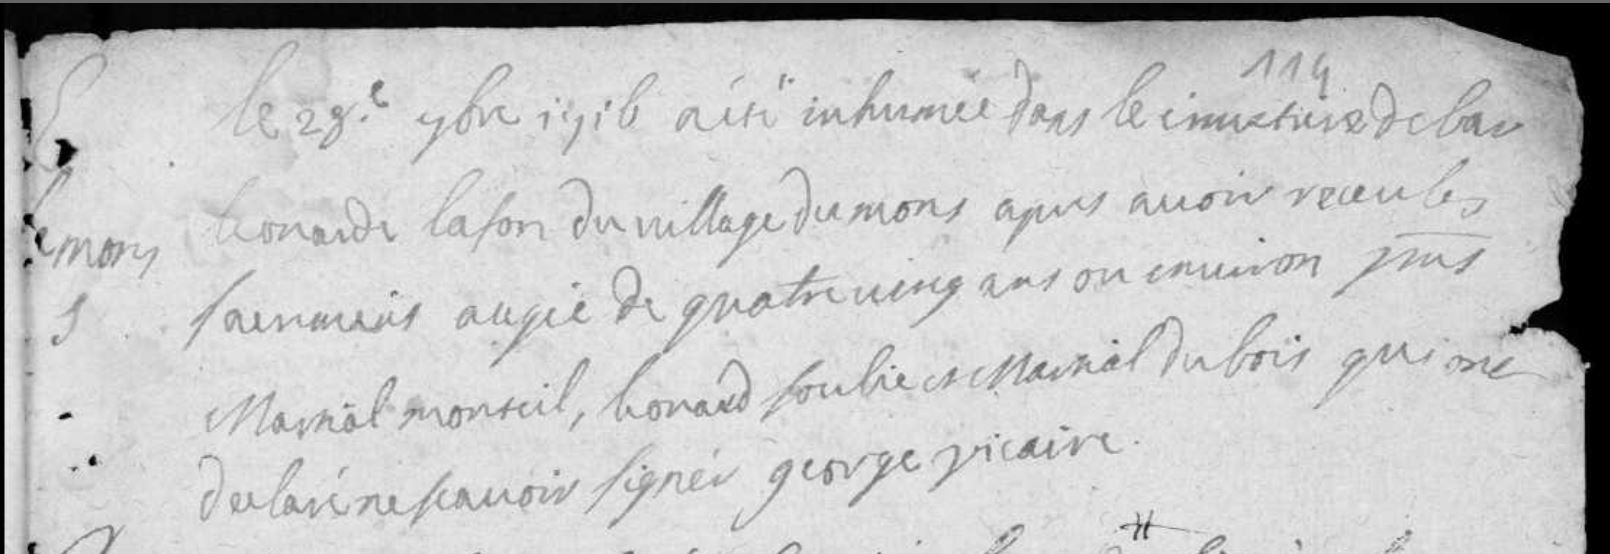 114
le 28.e 9bre 1716 a été inhumée dans le cimetiere de ceans
Leonarde lafon du village du mons apres avoir receu les
sacrements augée de quatre uing ans ou enuiron pnts
Martial monteil, leonard soulie et Martial du bois qui ont
declaré ne scauoir signer george vicaire.
mons